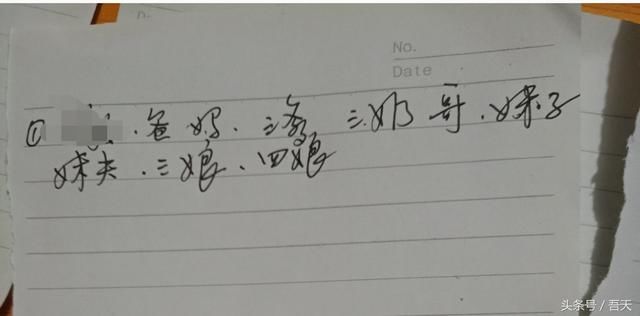 No.
Date
① .爸妈.三爷 三奶哥.妹子
妹夫.三娘.四娘
头条号／吾天